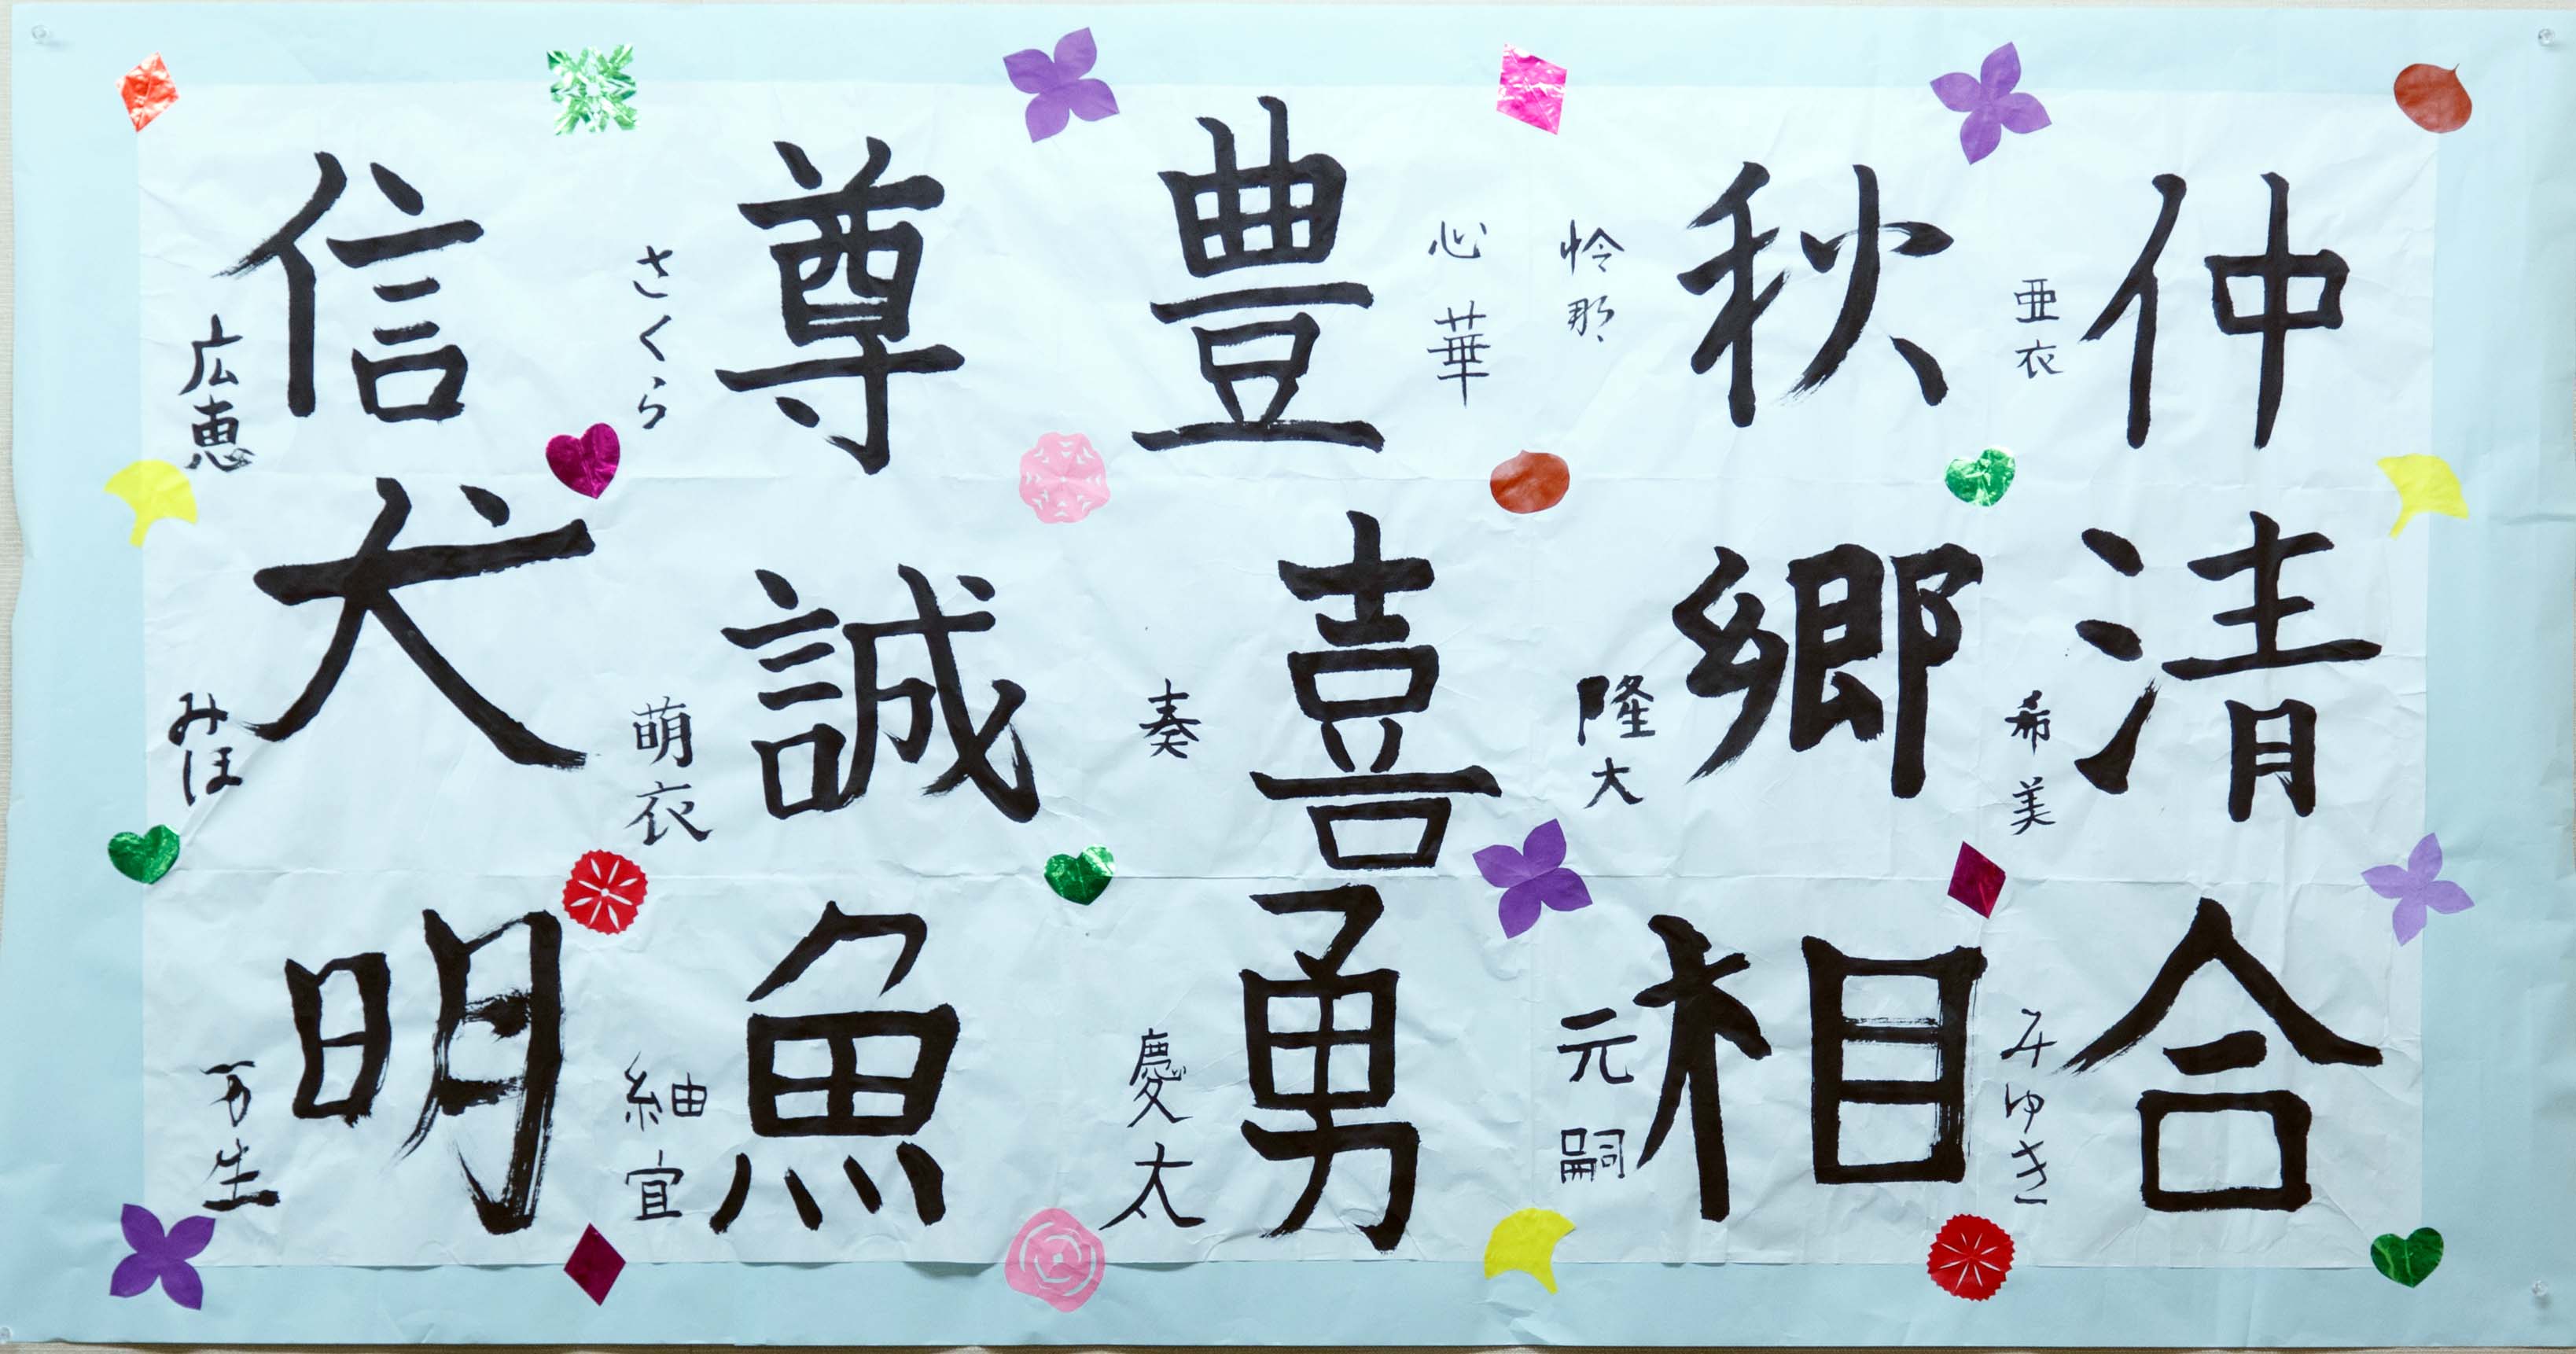 仲
亜衣
清
希美
合
みゆき
秋
怜那
郷
隆大
相
元嗣
心華
豊
喜
奏
勇
慶太
尊
さくら
誠
萌衣
魚
紬宜
信
広恵
犬
みほ
明
万生